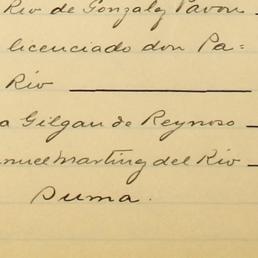 Rio de Gonzalez Pavon
licenciado don Pa=
Rio
a Gilgau de Reynoso
anuel Martinz del Rio
Suma.